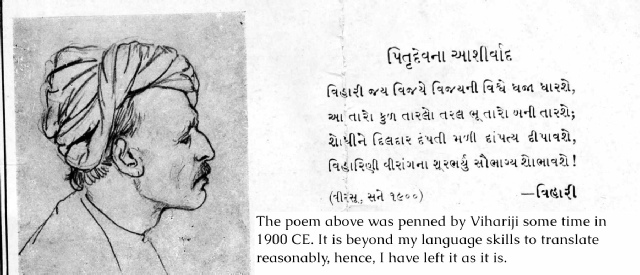 પિતૃદેવના આશીર્વાદ
વિહારી જય વિજયે વિજયની વિશ્વે ધજા ધારશે,
આ તારો કુળ તારલો તરલ ભૂ તારો બની તારશે;
શોધીને દિલદાર દંપતી મળી દાંપત્ય દીપાવશે,
વિહારિણી વીરાંગના શૂરભર્યું સૌભાગ્ય શોભાવશે !
(વીરસૂ, સને ૧૯૦૦) —વિહારી
The poem above was penned by Vihariji some time in
1900 CE. It is beyond my language skills to translate
reasonably, hence, I have left it as it is.